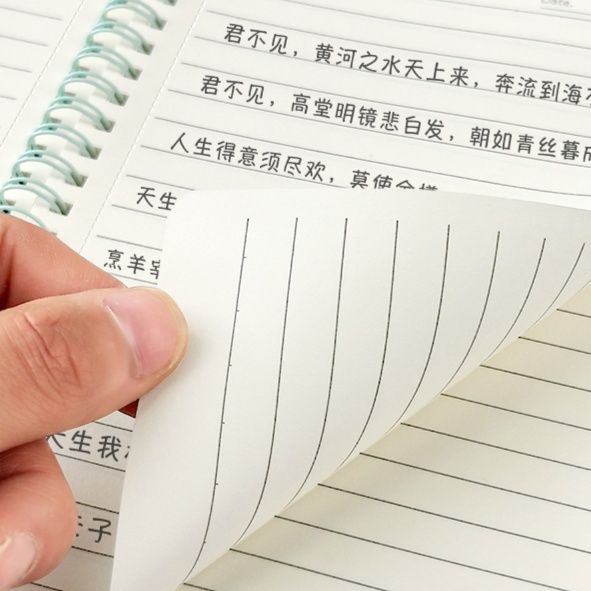 Date.
君不见，黄河之水天上来，奔流到海
君不见，高堂明镜悲白发，朝如青丝暮
人生得意须尽欢，莫使金樽
天生
烹羊宰
天生我